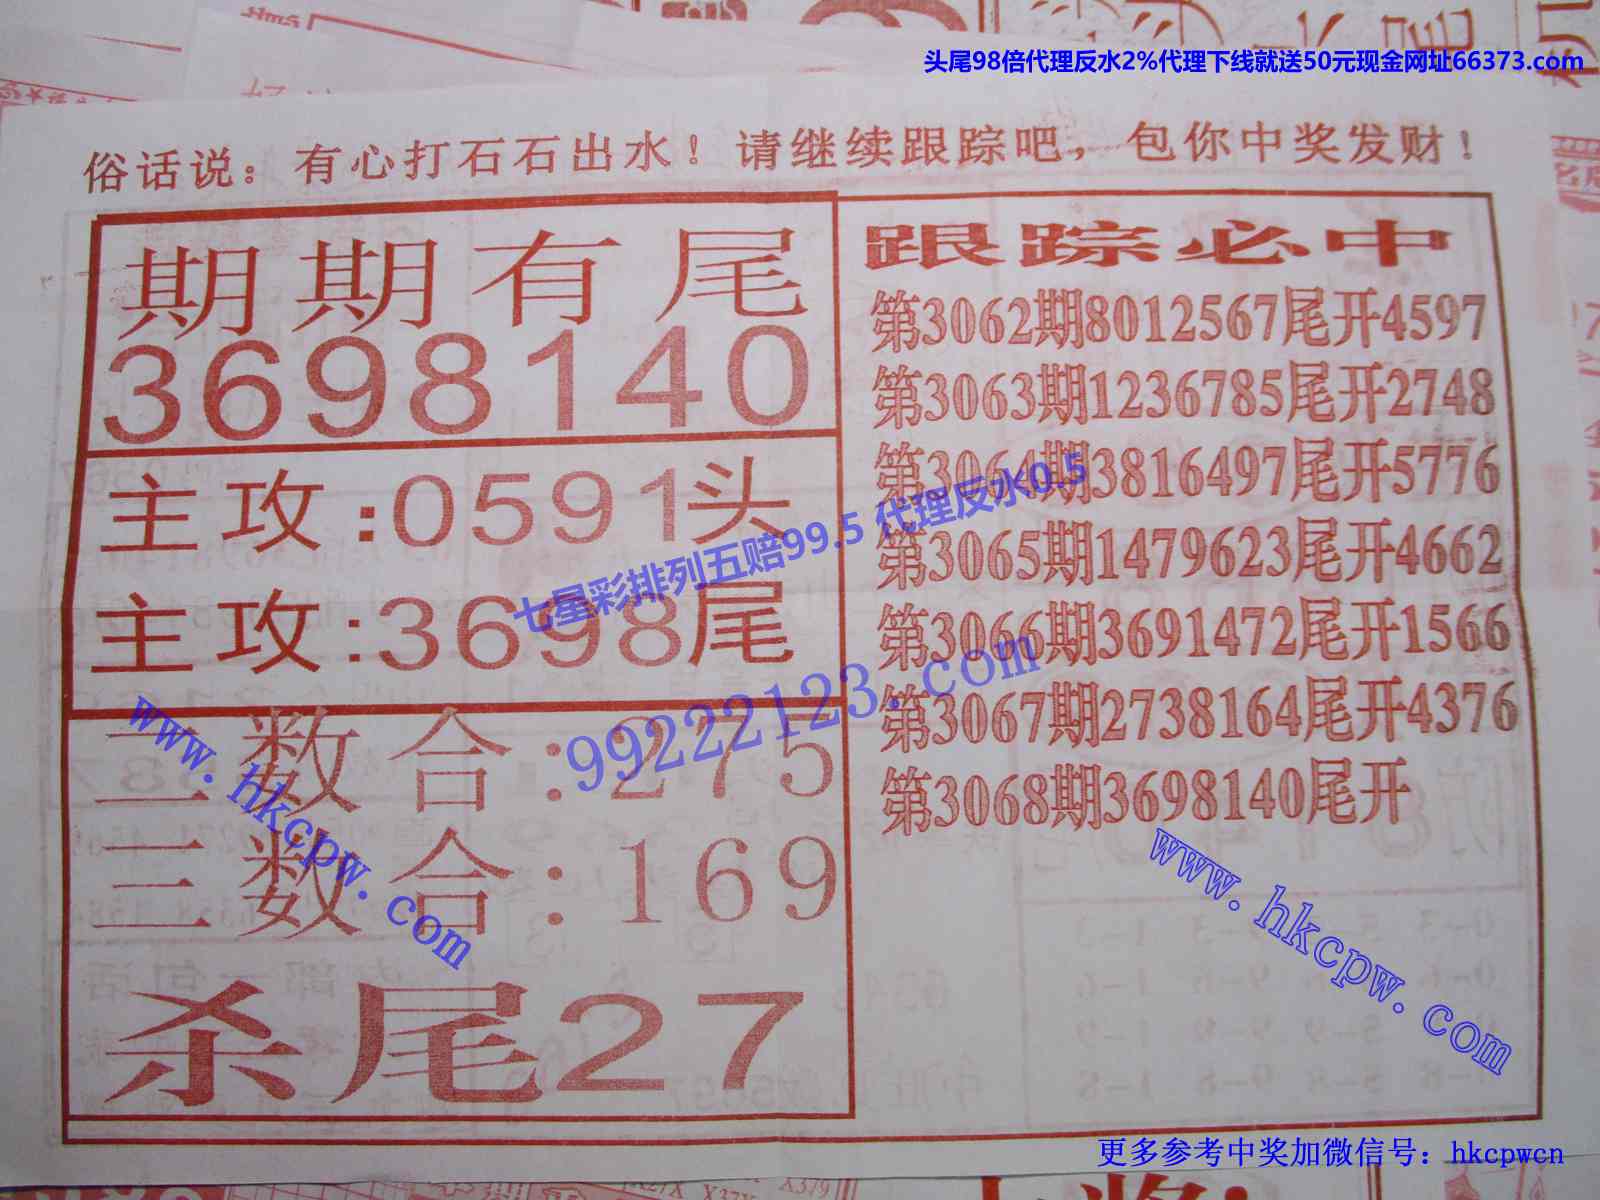 头尾98倍代理反水2%代理下线就送50元现金网址66373.com
俗话说：有心打石石出水！请继续跟踪吧，包你中奖发财！
期期有尾
3698140
主攻:0591头
主攻:3698尾
二数合:275
三数合:169
杀尾27
跟踪必中
第3062期8012567尾开4597
第3063期1236785尾开2748
第3064期3816497尾开5776
第3065期1479623尾开4662
第3066期3691472尾开1566
第3067期2738164尾开4376
第3068期3698140尾开
七星彩排列五赔99.5 代理反水0.5
99222123.com
www.hkcpw.com
www.hkcpw.com
更多参考中奖加微信号：hkcpwcn